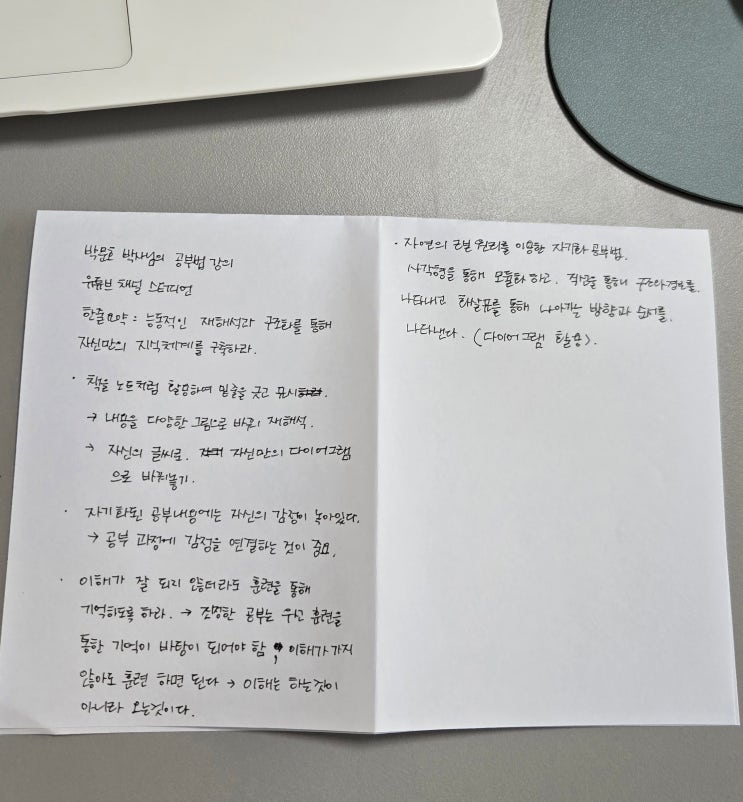 박문호 박사님의 공부법 강의
유튜브 채널 스터디언
한줄요약 : 능동적인 재해석과 구조화를 통해
자신만의 지식체계를 구축하라.
· 책을 노트처럼 활용하여 밑줄을 긋고 표시
→ 내용을 다양한 그림으로 바꿔 재해석.
→ 자신의 글씨로. 자신만의 다이어그램
으로 바꿔놓기.
· 자기화된 공부내용에는 자신의 감정이 녹아있다.
→ 공부 과정에 감정을 연결하는 것이 중요.
· 이해가 잘 되지 않더라도 훈련을 통해
기억하도록 하라. → 진정한 공부는 우선 훈련을
통한 기억이 바탕이 되어야 함, 이해가 가지
않아도 훈련 하면 된다 → 이해는 하는것이
아니라 오는것이다.
· 자연의 원리를 이용한 자기화 공부법.
사각형을 통해 모듈화 하고. 직선을 통해
나타내고 화살표를 통해 나아가는 방향과 순서를.
나타낸다. (다이어그램 활용).